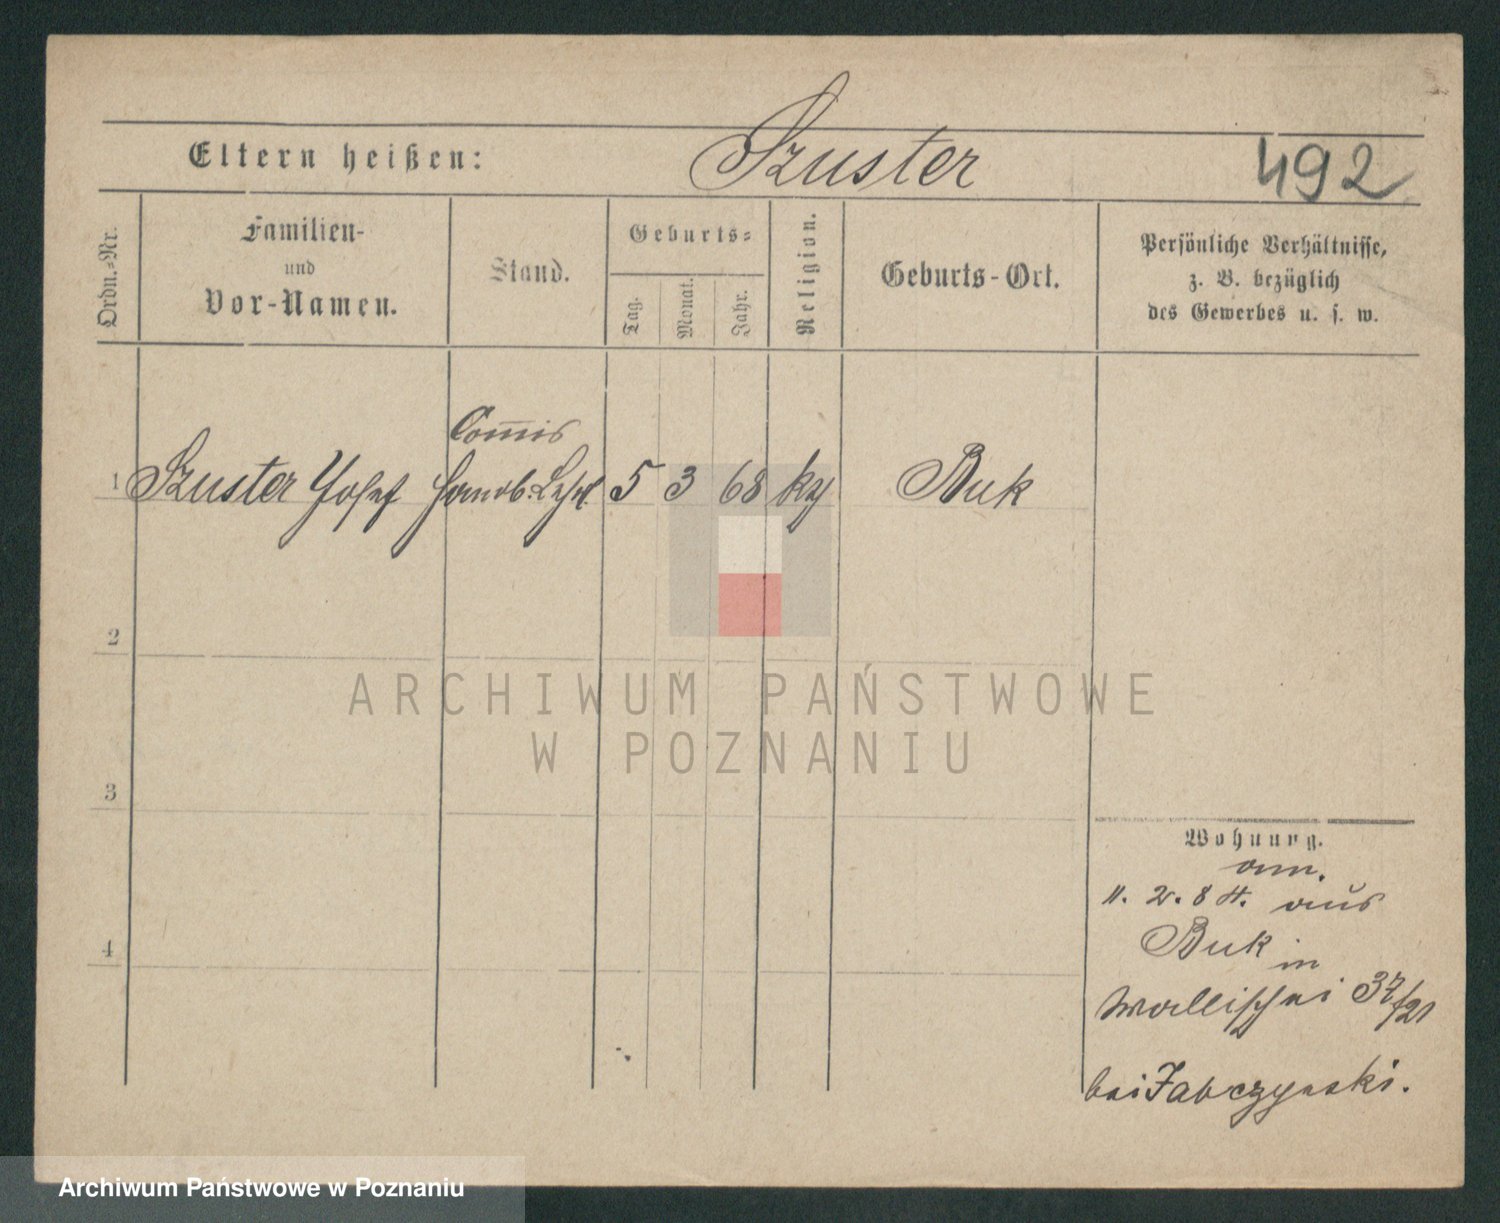 Szuster
Eltern heißen:
492
Ordn.-Nr.
Familien-
und
Vor-Namen.
Stand.
Geburts-
Tag.
Monat.
Jahr.
Religion.
Geburts-Ort.
Persönliche Verhältnisse,
z. B. bezüglich
des Gewerbes u. s. w.
Commis
1 Szuster Josef Handl. Lehrl. 5 3 68 ky Buk
2
3
4
ARCHIWUM PAŃSTWOWE
W POZNANIU
Wohnung.
am.
11. 2. 84. aus
Buk in
Wallischei 37/21
bei Jabczynski.
Archiwum Państwowe w Poznaniu